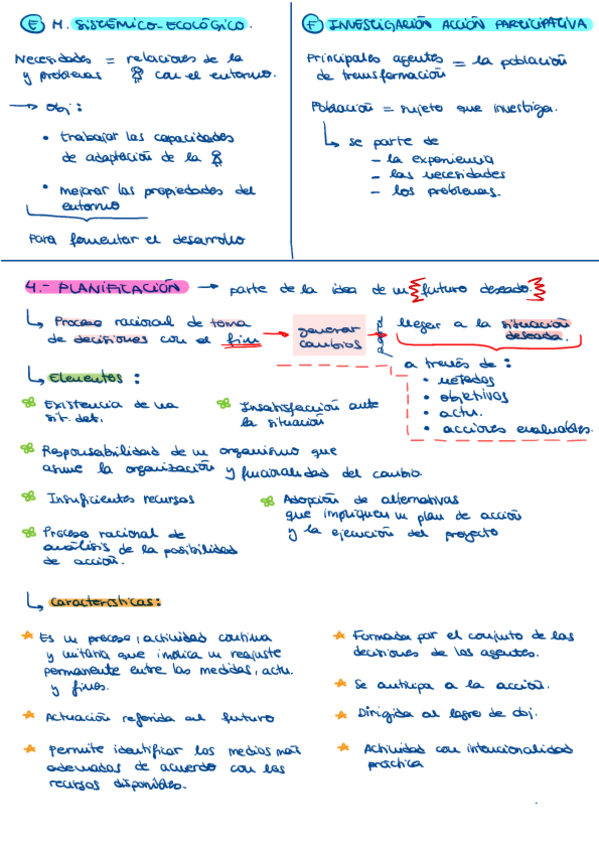 E M. SISTÉMICO-ECOLÓGICO.
Necesidades = relaciones de la
y problemas con el entorno.
→ Obj:
• trabajar las capacidades
de adaptación de la
• mejorar las propiedades del
entorno
para fomentar el desarrollo
F INVESTIGACIÓN ACCIÓN PARTICIPATIVA
Principales agentes = la población
de transformación
Población = sujeto que investiga.
↳ se parte de
- la experiencia
- las necesidades
- los problemas.
4.- PLANIFICACIÓN → parte de la idea de un futuro deseado.
↳ Proceso racional de toma
de decisiones con el fin → generar
cambios
para
llegar a la situación
deseada.
a través de:
• metodos
• objetivos
• actu.
• acciones evaluables.
↳ Elementos:
Existencia de una
sit. det.
Insatisfacción ante
la situación
Responsabilidad de un organismo que
asume la organización y funcionalidad del cambio.
Insuficientes recursos
Adopción de alternativas
que impliquen un plan de acción
y la ejecución del proyecto
Proceso racional de
análisis de la posibilidad
de acción.
↳ Características:
Es un proceso, actividad continua
y unitaria que implica un reajuste
permanente entre las medidas, actu.
y fines.
Actuación referida al futuro
Permite identificar los medios más
adecuados de acuerdo con los
recursos disponibles.
Formada por el conjunto de las
decisiones de los agentes.
Se anticipa a la acción.
Dirigida al logro de obj.
Actividad con intencionalidad
práctica